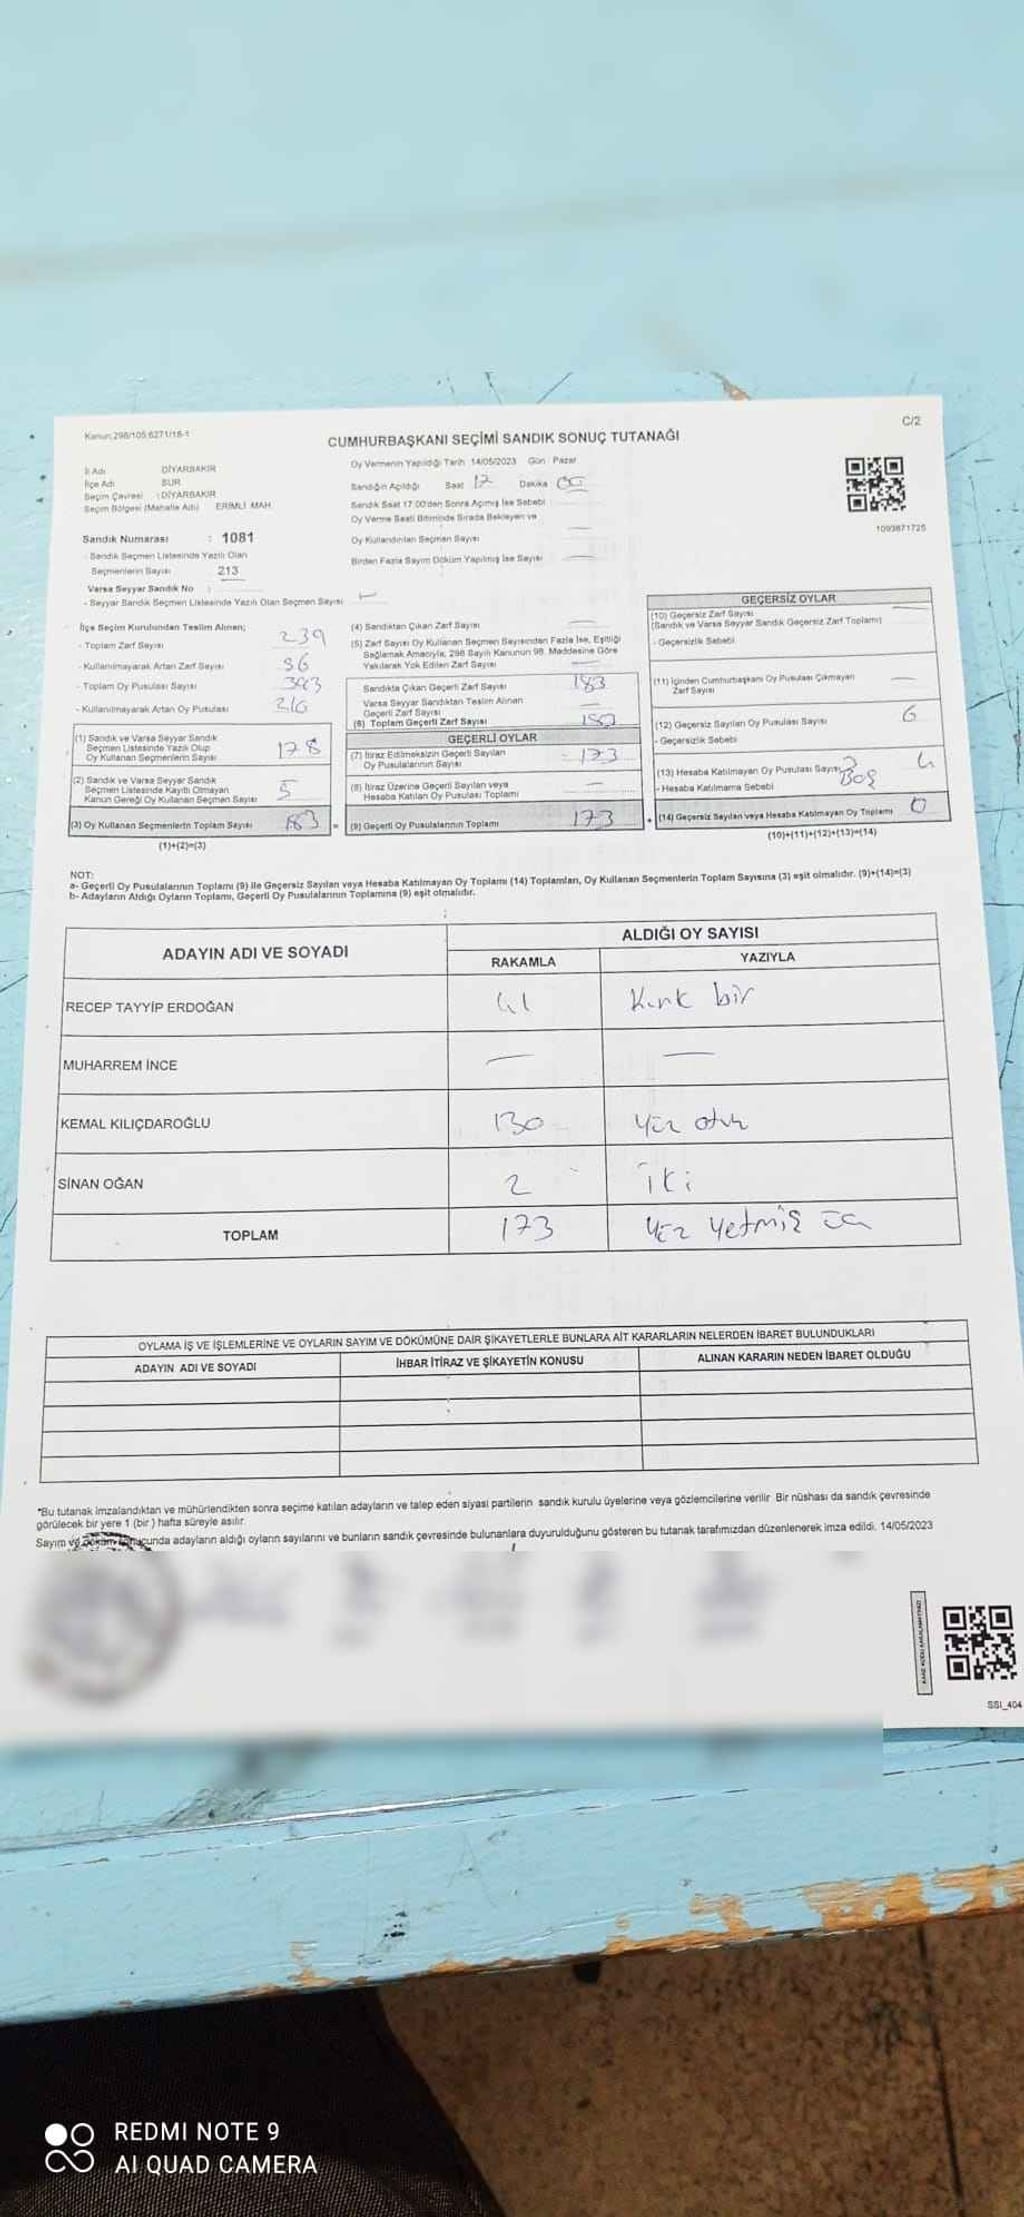 Kanun:298/105 6271/18-1
C/2
CUMHURBAŞKANI SEÇİMİ SANDIK SONUÇ TUTANAĞI
İl Adı DİYARBAKIR
İlçe Adı SUR
Seçim Çevresi : DİYARBAKIR
Seçim Bölgesi (Mahalle Adı) ERİMLİ MAH.
Sandık Numarası : 1081
- Sandık Seçmen Listesinde Yazılı Olan
Seçmenlerin Sayısı 213
Varsa Seyyar Sandık No :
- Seyyar Sandık Seçmen Listesinde Yazılı Olan Seçmen Sayısı
Oy Vermenin Yapıldığı Tarih 14/05/2023 Gün : Pazar
Sandığın Açıldığı Saat 17 Dakika 00
Sandık Saat 17:00'den Sonra Açılmış İse Sebebi
Oy Verme Saati Bitiminde Sırada Bekleyen ve
Oy Kullandırılan Seçmen Sayısı
Birden Fazla Sayım Döküm Yapılmış İse Sayısı
1093871725
İlçe Seçim Kurulundan Teslim Alınan;
- Toplam Zarf Sayısı 239
- Kullanılmayarak Artan Zarf Sayısı 56
- Toplam Oy Pusulası Sayısı
- Kullanılmayarak Artan Oy Pusulası 216
(1) Sandık ve Varsa Seyyar Sandık
Seçmen Listesinde Yazılı Olup
Oy Kullanan Seçmenlerin Sayısı 178
(2) Sandık ve Varsa Seyyar Sandık
Seçmen Listesinde Kayıtlı Olmayan
Kanun Gereği Oy Kullanan Seçmen Sayısı 5
(3) Oy Kullanan Seçmenlerin Toplam Sayısı 183
(1)+(2)=(3)
(4) Sandıktan Çıkan Zarf Sayısı
(5) Zarf Sayısı Oy Kullanan Seçmen Sayısından Fazla İse, Eşitliği
Sağlamak Amacıyla, 298 Sayılı Kanunun 98. Maddesine Göre
Yakılarak Yok Edilen Zarf Sayısı
Sandıkta Çıkan Geçerli Zarf Sayısı 183
Varsa Seyyar Sandıktan Teslim Alınan
Geçerli Zarf Sayısı
(6) Toplam Geçerli Zarf Sayısı
GEÇERLİ OYLAR
(7) İtiraz Edilmeksizin Geçerli Sayılan
Oy Pusulalarının Sayısı 173
(8) İtiraz Üzerine Geçerli Sayılan veya
Hesaba Katılan Oy Pusulası Toplamı
(9) Geçerli Oy Pusulalarının Toplamı 173
GEÇERSİZ OYLAR
(10) Geçersiz Zarf Sayısı
(Sandık ve Varsa Seyyar Sandık Geçersiz Zarf Toplamı)
- Geçersizlik Sebebi
(11) İçinden Cumhurbaşkanı Oy Pusulası Çıkmayan
Zarf Sayısı
(12) Geçersiz Sayılan Oy Pusulası Sayısı 6
- Geçersizlik Sebebi
(13) Hesaba Katılmayan Oy Pusulası Sayısı 4
- Hesaba Katılmama Sebebi Boş
(14) Geçersiz Sayılan veya Hesaba Katılmayan Oy Toplamı
(10)+(11)+(12)+(13)=(14)
NOT:
a- Geçerli Oy Pusulalarının Toplamı (9) ile Geçersiz Sayılan veya Hesaba Katılmayan Oy Toplamı (14) Toplamları, Oy Kullanan Seçmenlerin Toplam Sayısına (3) eşit olmalıdır. (9)+(14)=(3)
b- Adayların Aldığı Oyların Toplamı, Geçerli Oy Pusulalarının Toplamına (9) eşit olmalıdır.
ADAYIN ADI VE SOYADI ALDIĞI OY SAYISI
RAKAMLA YAZIYLA
RECEP TAYYİP ERDOĞAN 41 Kırk bir
MUHARREM İNCE — —
KEMAL KILIÇDAROĞLU 130 yüz otuz
SİNAN OĞAN 2 iki
TOPLAM 173 yüz yetmiş üç
OYLAMA İŞ VE İŞLEMLERİNE VE OYLARIN SAYIM VE DÖKÜMÜNE DAİR ŞİKAYETLERLE BUNLARA AİT KARARLARIN NELERDEN İBARET BULUNDUKLARI
ADAYIN ADI VE SOYADI İHBAR İTİRAZ VE ŞİKAYETİN KONUSU ALINAN KARARIN NEDEN İBARET OLDUĞU
*Bu tutanak imzalandıktan ve mühürlendikten sonra seçime katılan adayların ve talep eden siyasi partilerin sandık kurulu üyelerine veya gözlemcilerine verilir. Bir nüshası da sandık çevresinde
görülecek bir yere 1 (bir) hafta süreyle asılır.
Sayım ve döküm sonucunda adayların aldığı oyların sayılarını ve bunların sandık çevresinde bulunanlara duyurulduğunu gösteren bu tutanak tarafımızdan düzenlenerek imza edildi. 14/05/2023
SSI_404
REDMI NOTE 9
AI QUAD CAMERA